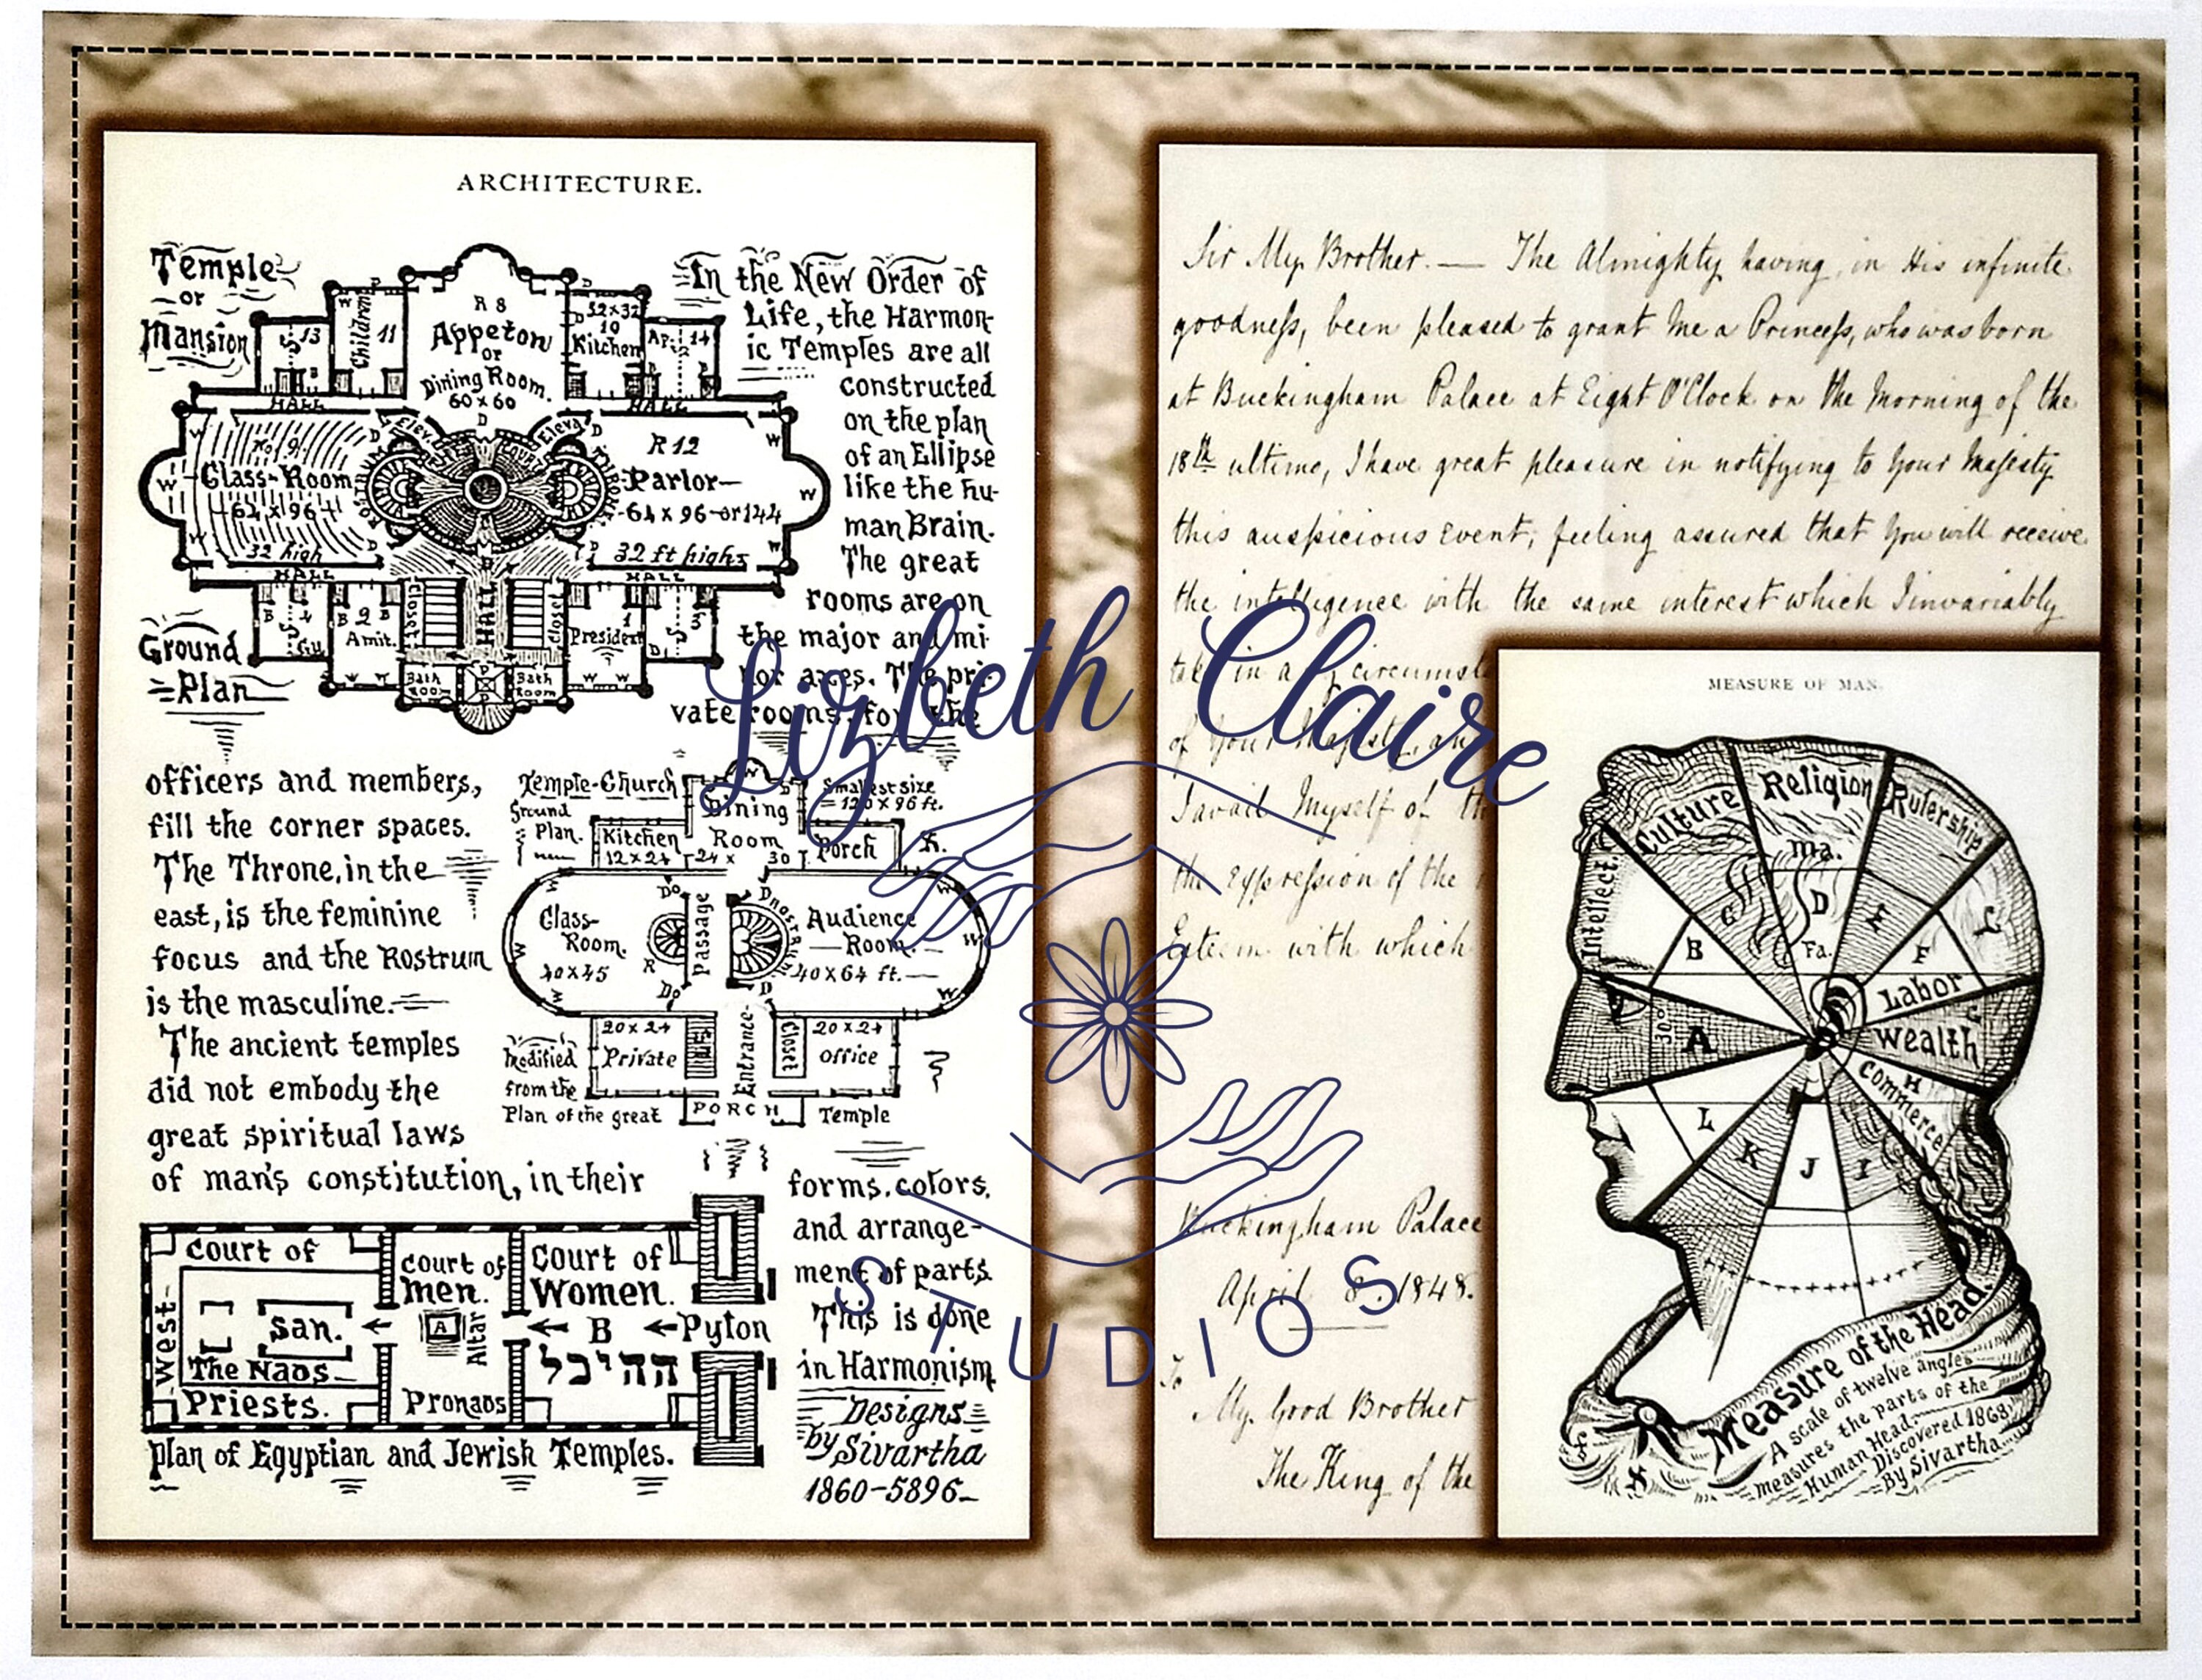 ARCHITECTURE.
Temple
or
Mansion
Ground
Plan
13
Children
11
R 8
Appeton
or
Dining Room.
60 x 60
52x32
10
Kitchen
14
HALL
HALL
No. 9.
Class-Room
64 x 96
32 high
HALL
R 12
Parlor
64 x 96 or 144
32 ft high
HALL
4
2
Amit.
Closet
HALL
Closet
1
President
3
Bath
Room
Bath
Room
In the New Order of
Life, the Harmon-
ic Temples are all
constructed
on the plan
of an Ellipse
like the hu-
man Brain.
The great
rooms are on
the major and mi-
nor axes. The pri-
vate rooms, for the
officers and members,
fill the corner spaces.
The Throne, in the
east, is the feminine
focus and the Rostrum
is the masculine.
The ancient temples
did not embody the
great spiritual laws
of man's constitution, in their
forms, colors,
and arrange-
ment of parts.
This is done
in Harmonism.
Designs
by Sivartha
1860-5896
Temple-Church
Ground
Plan.
Smallest size
= 120 x 96 ft.
Dining
Room
24 x 30
Kitchen
12 x 24
Porch
Class-
Room.
40 x 45
Passage
Audience
Room.
40 x 64 ft.
20 x 24
Private
Entrance
Closet
20 x 24
Office
Modified
from the
Plan of the great
PORCH
Temple
Court of
West
San.
The Naos
Priests.
Court of
men.
A
Altar
Pronaos
Court of
Women.
B
Pylon
ההיכל
Plan of Egyptian and Jewish Temples.
Sir My Brother. — The Almighty having, in His infinite
goodness, been pleased to grant Me a Princess, who was born
at Buckingham Palace at Eight O'Clock on the Morning of the
18th ultimo, I have great pleasure in notifying to Your Majesty
this auspicious Event, feeling assured that You will receive
the intelligence with the same interest which I invariably
take in any circumst
of Your Majesty, an
I avail Myself of th
the expression of the
Esteem with which
Buckingham Palace
April 8. 1848.
To
My Good Brother
The King of the
MEASURE OF MAN.
Intellect.
Culture
Religion
Rulership
Ma.
C
D
E
Fa.
B
F
Labor
G
A
30°
Wealth
H
Commerce
L
K
J
I
Measure of the Head.
A scale of twelve angles
measures the parts of the
Human Head.
Discovered 1868
By Sivartha
Lizbeth Claire
STUDIOS